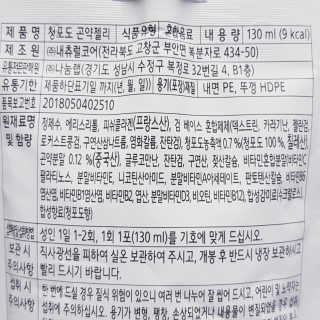 제 품 명 청포도 곤약젤리 식품유형 혼합음료 용량 130 ml (9 kcal)
제 조 원 ㈜내츄럴코어(전라북도 고창군 부안면 복분자로 434-50)
유통전문판매원 ㈜나눔랩(경기도 성남시 수정구 복정로32번길 4, B1층)
유통기한 제품하단표기일 까지(년, 월, 일) 용기(포장)재질 내면 PE, 뚜껑 HDPE
품목보고번호 2018050402510
원재료명 및 함량 정제수, 에리스리톨, 피쉬콜라겐(프랑스산), 검 베이스 혼합제제(덱스트린, 카라기난, 젤란검,
로커스트콩검, 구연산삼나트륨, 염화칼륨, 잔탄검), 청포도농축액 0.7 %(청포도 100 %, 칠레산),
곤약분말 0.12 %(중국산), 글루코만난, 잔탄검, 구연산, 젖산칼슘, 비타민혼합분말(비타민C,
팔라티노스, 분말비타민E, 니코틴산아미드, 분말비타민A아세테이트, 판토텐산칼슘, 비타민B6
염산염, 비타민B1염산염, 비타민B2, 엽산, 분말비타민D3, 비오틴, 비타민B12), 합성감미료(수크랄로스),
합성향료(청포도향)
성인 1일 1-2회, 1회 1포(130 ml)를 기호에 맞게 드십시오.
보관시 주의사항 직사광선을 피하여 실온 보관하여 주시고, 개봉 후 반드시 냉장 보관하시고
빨리 드시기 바랍니다.
섭취시 주의사항 한 번에 드실 경우 질식 위험이 있으니 여러 번 나누어 잘 씹어 드시고, 어린이 및 노약자는
섭취를 용기가 변형, 팽창, 손상되었거나 내용물이 변질